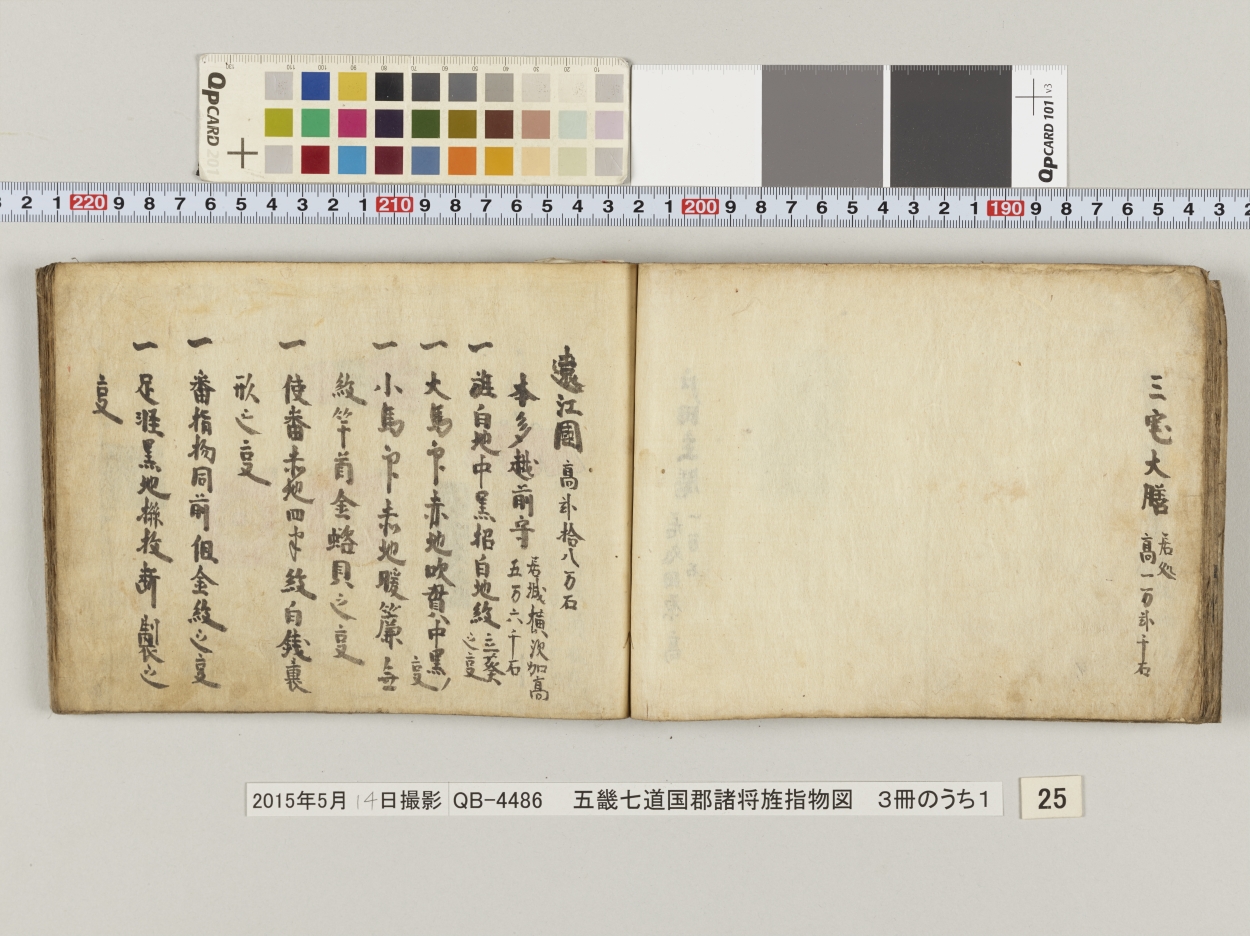 QPCARD 201
QPCARD 101 v3
2 1 220 9 8 7 6 5 4 3 2 1 210 9 8 7 6 5 4 3 2 1 200 9 8 7 6 5 4 3 2 1 190 9 8 7 6 5 4 3 2
三宅大膳 居処 高一万弐千石
遠江國 高弐拾八万石
本多越前守 居城横須加高 五万六千石
一 旌白地中黒招白地紋三葵之㕝
一 大馬印赤地吹貫中黒ノ㕝
一 小馬印赤地暖簾無
紋竿首金蛤貝之㕝
一 使番赤地四半紋白銭裏
形之㕝
一 番指物同前但金紋之㕝
一 足軽黒地 製之
㕝
2015年5月14日撮影 QB-4486 五畿七道国郡諸将旌指物図 3冊のうち1
25